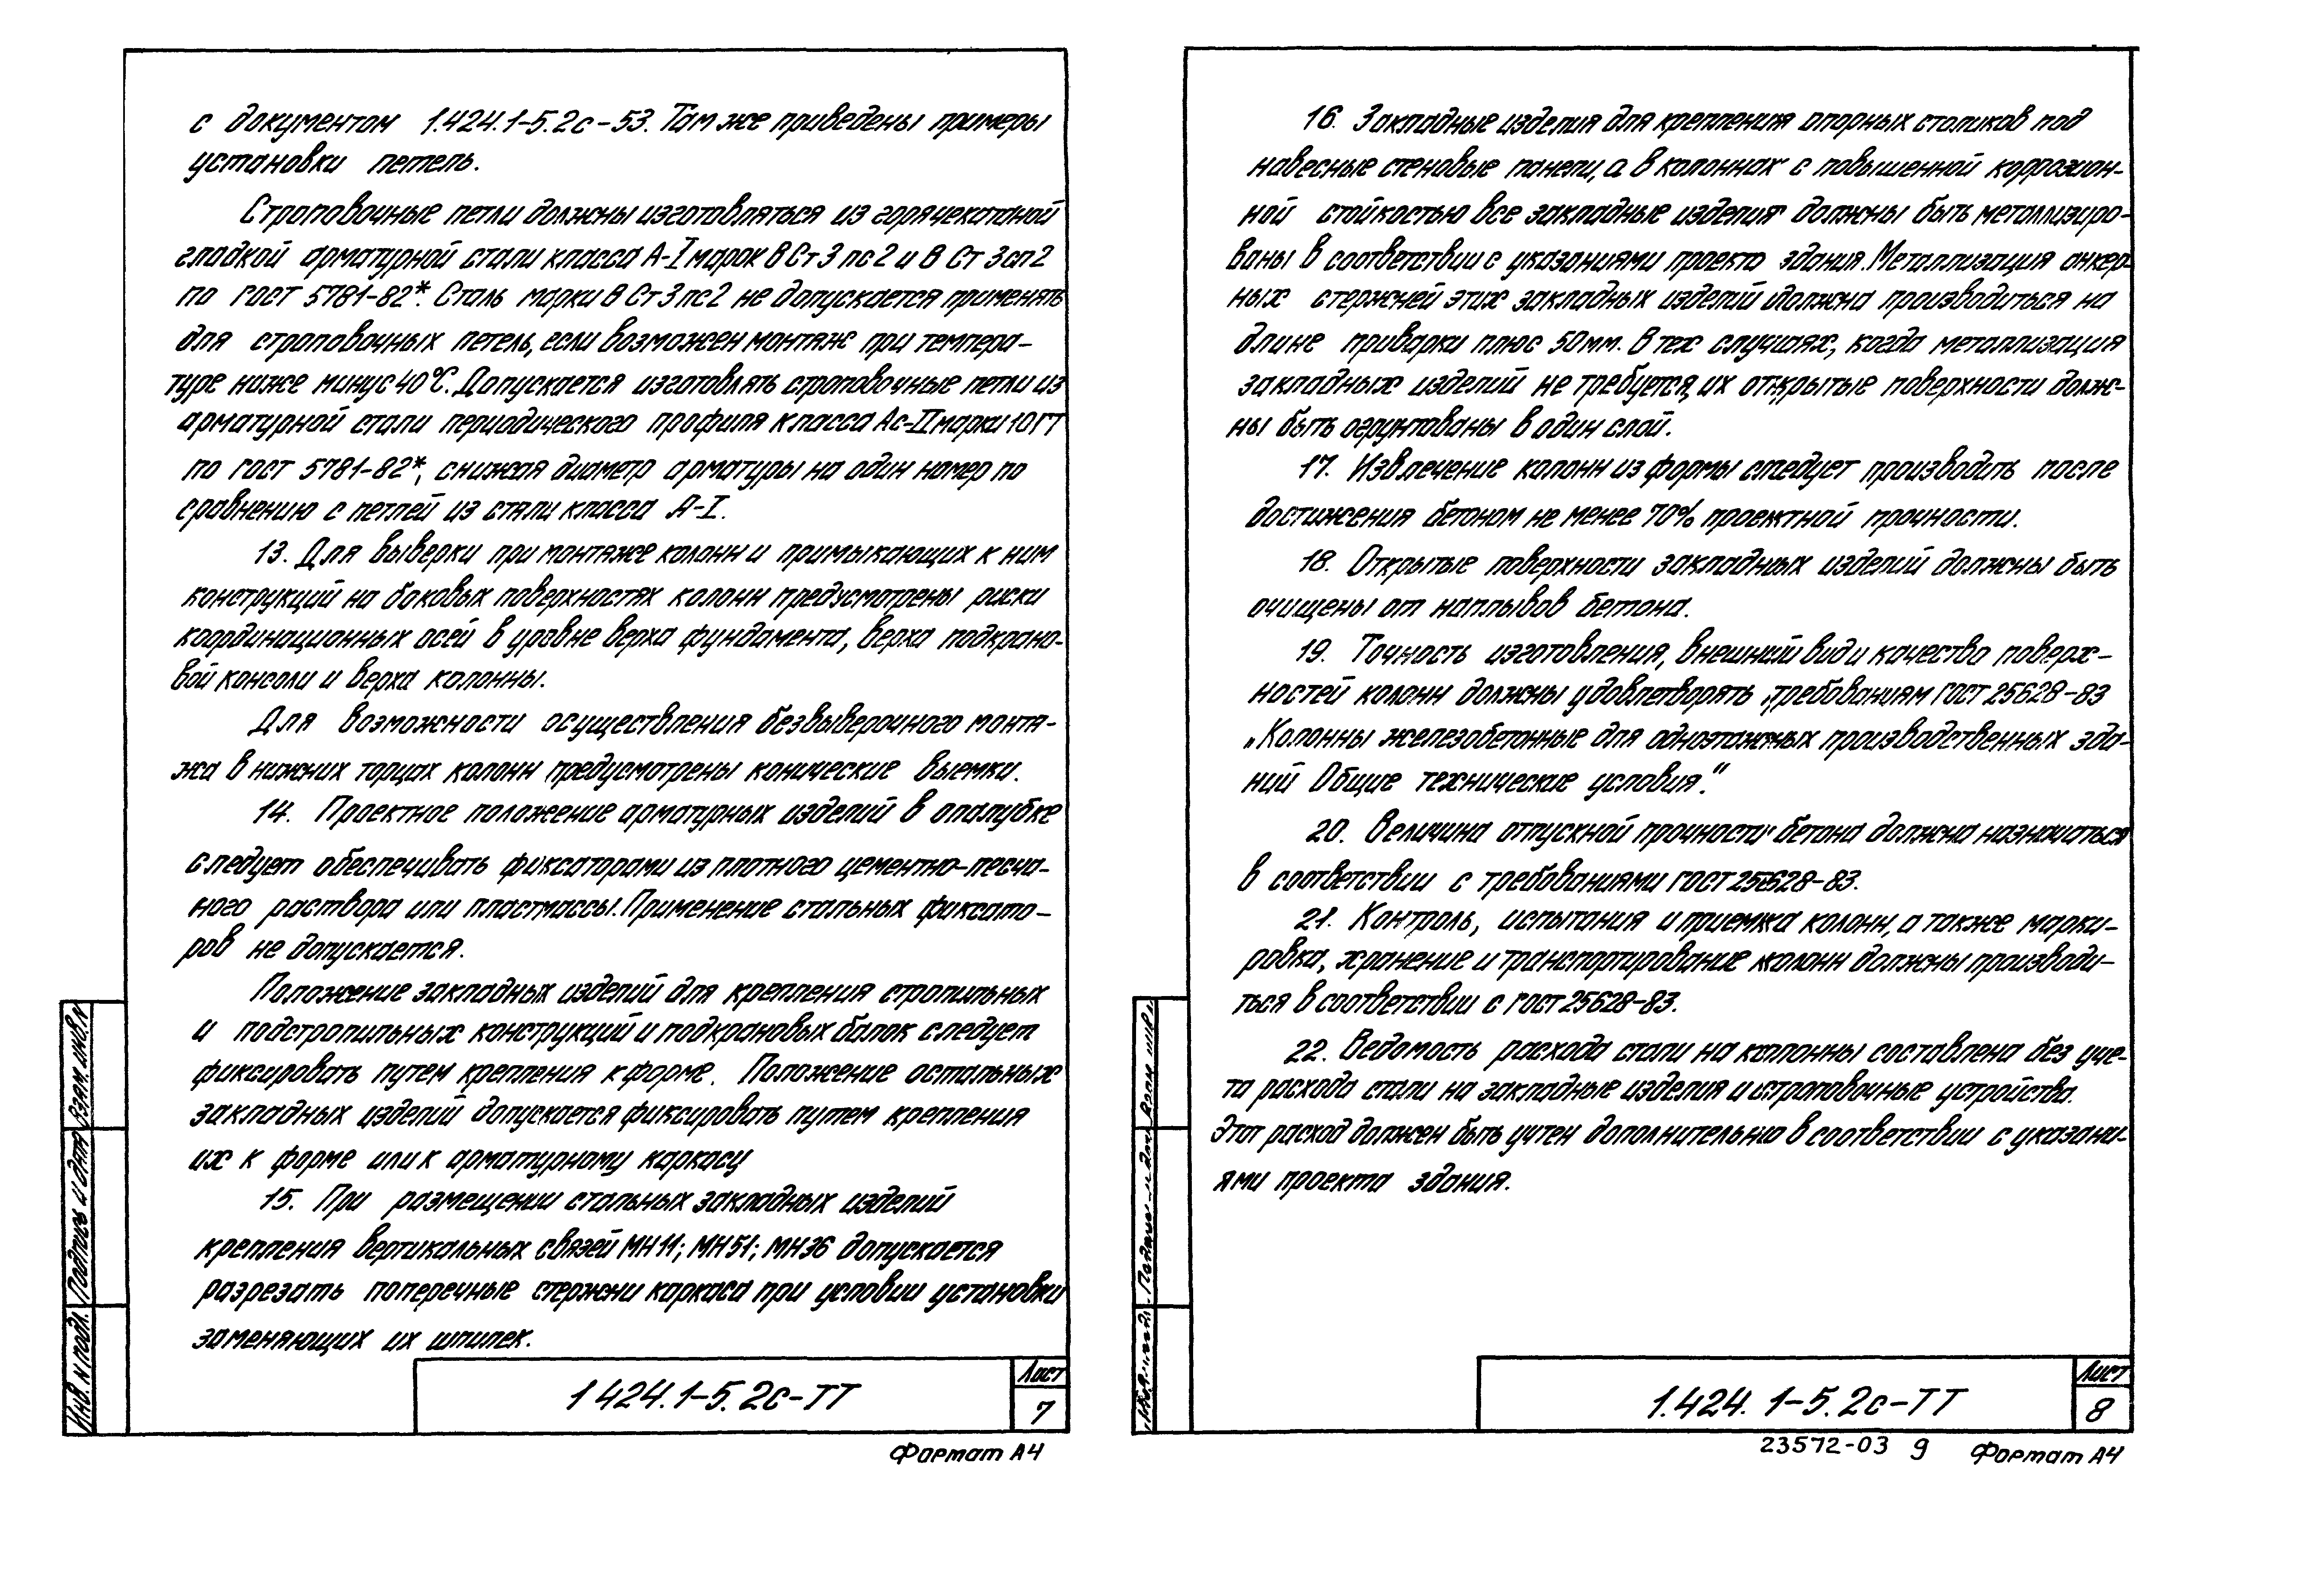 с документом 1.424.1-5.2с-53. Там же приведены примеры
установки петель.
Строповочные петли должны изготовляться из горячекатаной
гладкой арматурной стали класса А-I марок ВСт3пс2 и ВСт3сп2
по ГОСТ 5781-82*. Сталь марки ВСт3пс2 не допускается применять
для строповочных петель, если возможен монтаж при темпера-
туре ниже минус 40°С. Допускается изготовлять строповочные петли из
арматурной стали периодического профиля класса Ас-II марки 10ГТ
по ГОСТ 5781-82*, снижая диаметр арматуры на один номер по
сравнению с петлей из стали класса А-I.
13. Для выверки при монтаже колонн и примыкающих к ним
конструкций на боковых поверхностях колонн предусмотрены риски
координационных осей в уровне верха фундамента, верха подкрано-
вой консоли и верха колонны.
Для возможности осуществления безвыверочного монта-
жа в нижних торцах колонн предусмотрены конические выемки.
14. Проектное положение арматурных изделий в опалубке
следует обеспечивать фиксаторами из плотного цементно-песча-
ного раствора или пластмассы. Применение стальных фиксато-
ров не допускается.
Положение закладных изделий для крепления стропильных
и подстропильных конструкций и подкрановых балок следует
фиксировать путем крепления к форме. Положение остальных
закладных изделий допускается фиксировать путем крепления
их к форме или к арматурному каркасу
15. При размещении стальных закладных изделий
крепления вертикальных связей МН11; МН51; МН36 допускается
разрезать поперечные стержни каркаса при условии установки
заменяющих их шпилек.
Взам. инв. N
Подпись и дата
Инв. N подл.
1 424.1-5.2с-ТТ
Лист
7
Формат А4
16. Закладные изделия для крепления опорных столиков под
навесные стеновые панели, а в колоннах с повышенной коррозион-
ной стойкостью все закладные изделия должны быть металлизиро-
ваны в соответствии с указаниями проекта здания. Металлизация анкер-
ных стержней этих закладных изделий должна производиться на
длине приварки плюс 50мм. В тех случаях, когда металлизация
закладных изделий не требуется, их открытые поверхности долж-
ны быть огрунтованы в один слой.
17. Извлечение колонн из формы следует производить после
достижения бетоном не менее 70% проектной прочности.
18. Открытые поверхности закладных изделий должны быть
очищены от наплывов бетона.
19. Точность изготовления, внешний вид и качество поверх-
ностей колонн должны удовлетворять требованиям ГОСТ 25628-83
„Колонны железобетонные для одноэтажных производственных зда-
ний Общие технические условия."
20. Величина отпускной прочности бетона должна назначаться
в соответствии с требованиями ГОСТ 25628-83.
21. Контроль, испытания и приемка колонн, а также марки-
ровка, хранение и транспортирование колонн должны производи-
ться в соответствии с ГОСТ 25628-83.
22. Ведомость расхода стали на колонны составлена без уче-
та расхода стали на закладные изделия и строповочные устройства.
Этот расход должен быть учтен дополнительно в соответствии с указани-
ями проекта здания.
1.424.1-5.2с-ТТ
Лист
8
23572-03 9
Формат А4